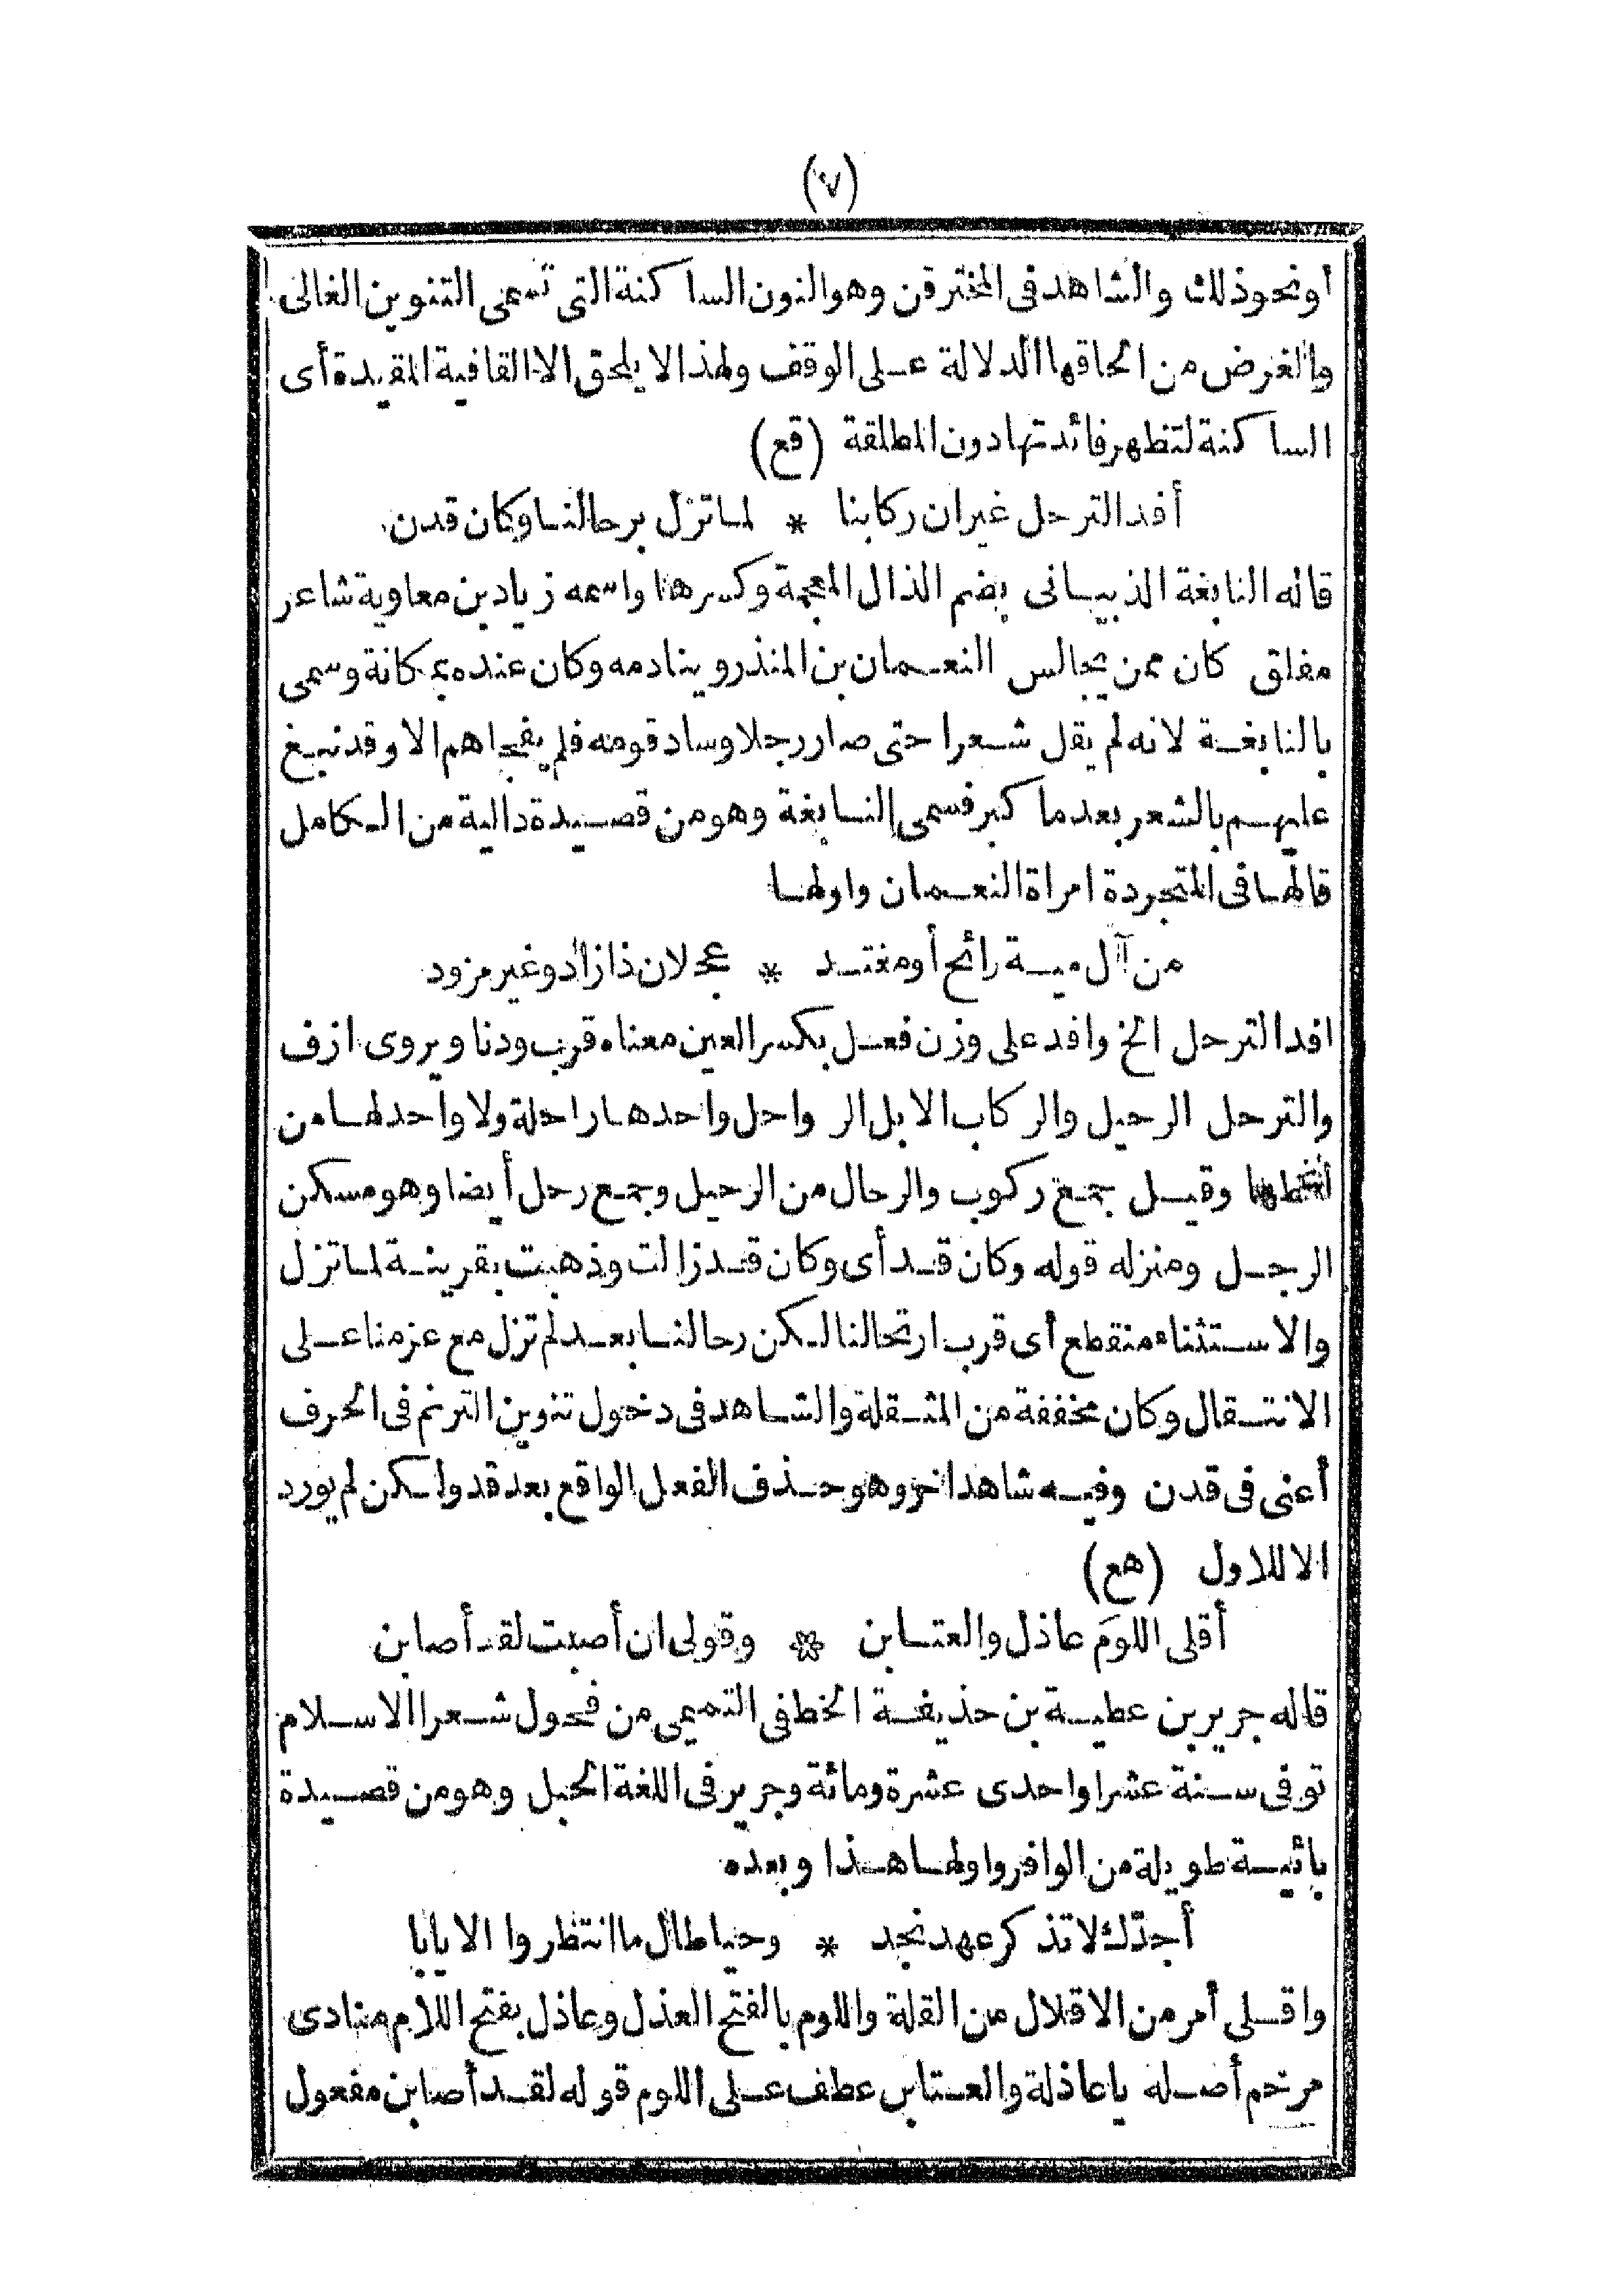 (٧)
أو نحو ذلك والشاهد فى المخترقن وهو النون الساكنة التى تسمى التنوين الغالى
والغرض من الحاقها الدلالة على الوقف ولهذا لا يلحق الا القافية المقيدة أى
الساكنة لتظهر فائدتها دون المطلقة (قع)
أفد الترحل غير ان ركابنا * لما تزل برحالنا وكان قدن
قاله النابغة الذبيانى بضم الذال المعجمة وكسرها واسمه زياد بن معاوية شاعر
مفلق كان ممن يجالس النعمان بن المنذر وينادمه وكان عنده بمكانة وسمى
بالنابغة لانه لم يقل شعرا حتى صار رجلا وساد قومه فلم يفجاهم الا وقد نبغ
عليهم بالشعر بعدما كبر فسمى النابغة وهو من قصيدة دالية من الكامل
قالها فى المتجردة امراة النعمان واولها
من آل مية رائح أو مغتد * عجلان ذا زاد وغير مزود
افد الترحل الخ وافد على وزن فعل بكسر العين معناه قرب ودنا ويروى ازف
والترحل الرحيل والركاب الابل الرواحل واحدها راحلة ولا واحد لها من
لفظها وقيل جمع ركوب والرحال من الرحيل وجمع رحل أيضا وهو مسكن
الرجل ومنزله قوله وكان قد أى وكان قد زالت وذهبت بقرينة لما تزل
والاستثناء منقطع أى قرب ارتحالنا لكن رحالنا بعد لم تزل مع عزمنا على
الانتقال وكان مخففة من المثقلة والشاهد فى دخول تنوين الترنم فى الحرف
أعنى فى قدن وفيه شاهد اخر وهو حذف الفعل الواقع بعد قد ولكن لم يورد
الا للاول (هع)
أقلى اللومَ عاذل والعتابن * وقولى ان أصبت لقد أصابن
قاله جرير بن عطية بن حذيفة الخطفى التميمى من فحول شعرا الاسلام
توفى سنة عشر او احدى عشرة ومائة وجرير فى اللغة الحبل وهو من قصيدة
بائية طويلة من الوافر واولها هذا وبعده
أجدّك لا تذكر عهد نجد * وحيا طال ما انتظروا الايابا
واقلى أمر من الاقلال من القلة واللوم بالفتح العذل وعاذل بفتح اللام منادى
مرخم أصله يا عاذلة والعتابن عطف على اللوم قوله لقد أصابن مفعول